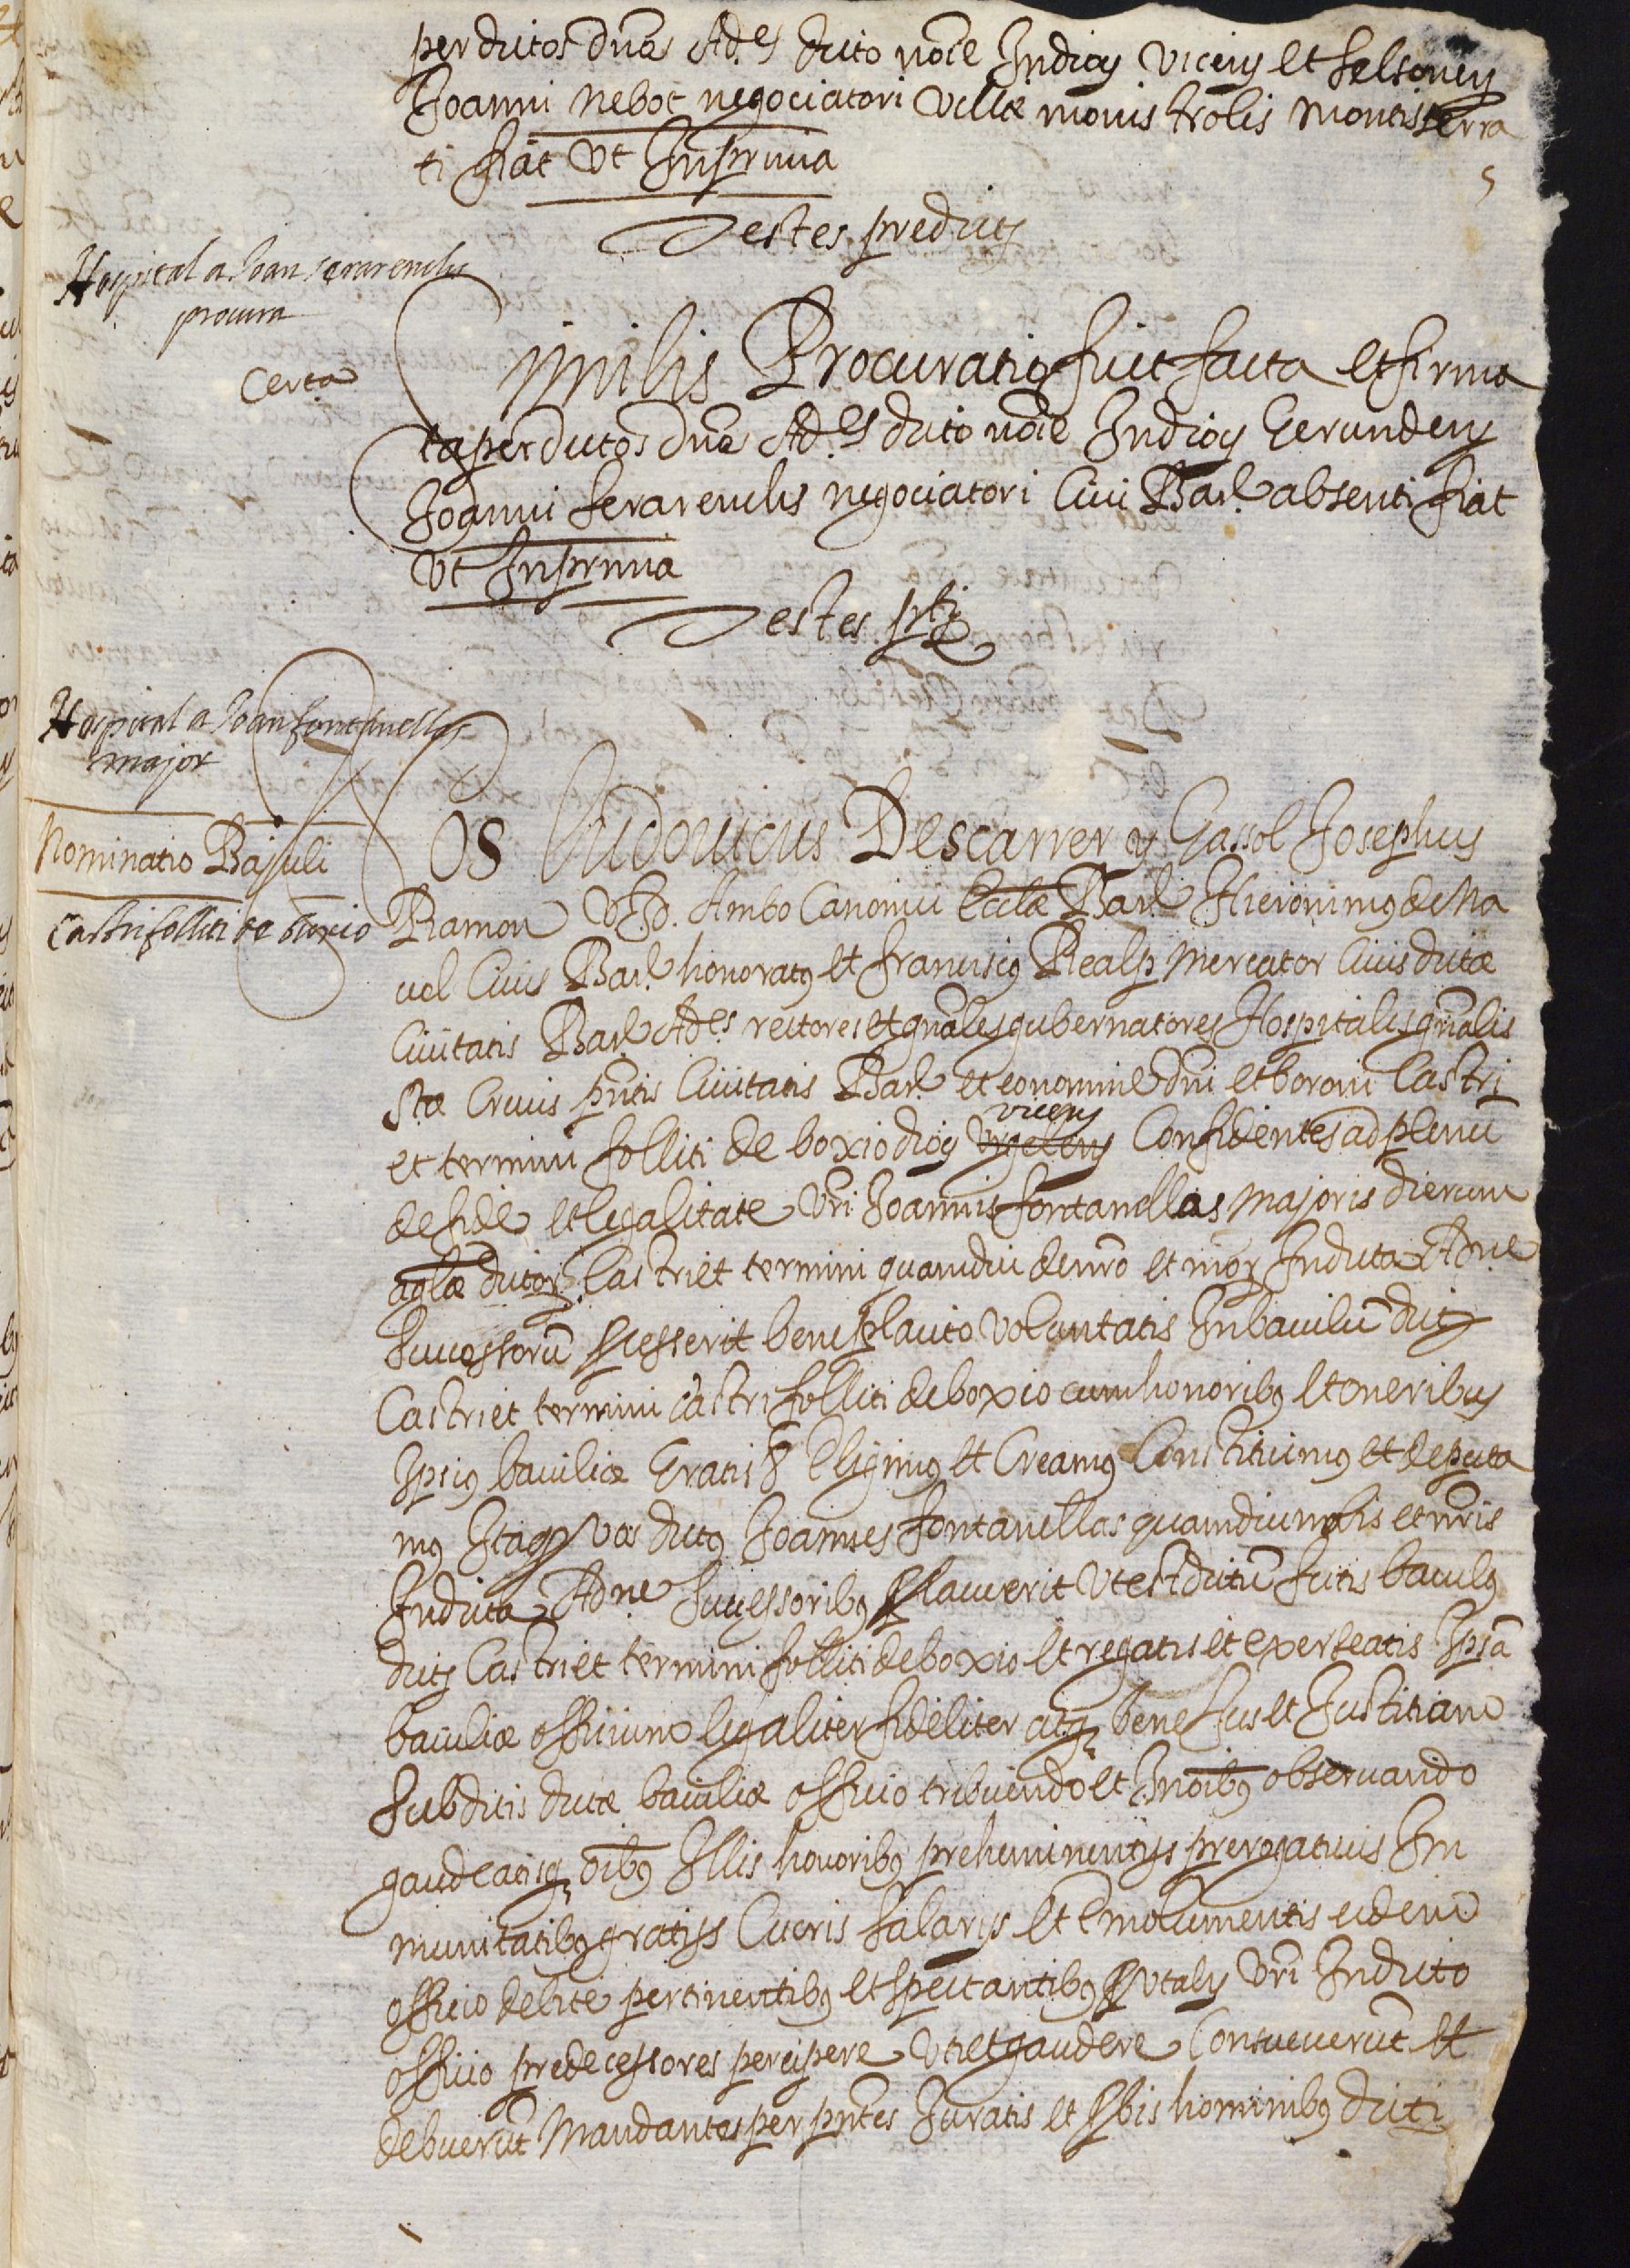 per dictos dnōs Adēs dicto noīe In diocy Viceny et Selsoneny
Joanni Nebot negociatori villæ monistrolis montisserra
ti fiat ut In prima
Testes predicti
Hospital a Joan serarenchs
procura
Certa
Similis Procuratio fuit facta et firma
ta per dictos dnōs Ad.es dicto noīe In diocy Gerundeny
Joanni serarenchs negociatori Civi Bar.e absenti fiat
Ut In prima
Testes pti
Hospital a Joan fontanellas
major
Nominatio Bajuli
Castrifolliti de boxio
Nos Ludovicus Descarrer y Gassol Josephus
Ramon U.J.D. Ambo Canonici Ecclæ Bar.e Hieronimq de Na
vel Civis Bar.e honoratq et franciscq Realp Mercator Civis dictæ
Civitatis Bar.e Ad.es rectores et gnāles gubernatores Hospitalis gnālis
Stæ Crucis pntis Civitatis Bar.e et eo nomine dni et baroni Castri
viceny
et termini folliti de boxio diocy Urgeleny Confidentes ad plenū
de fide et legalitate Vri Joannis fontanellas majoris dierum
aglæ dictor. Castri et termini quamdiu de nro et nror In dicta Adne
Successorū processerit beneplacito voluntatis In baiulū dicti
Castri et termini castri folliti de boxio cum honoribq et oneribus
Ipsiq baiuliæ Gratis & Eligimq et Creamq Constituimq et deputa
mq Itaq vos dictq Joannes fontanellas quamdiu nobis et nris
In dicta Adne Successoribq placuerit ut est dictū sitis baiulq
dicti Castri et termini folliti de boxio et regatis et exerseatis Ipsā
baiuliæ officium legaliter fideliter atq bene Jus et Justitiam
Subditis dictæ baiuliæ officio tribuendo et In oībq observando
gaudeatisq oībq Illis honoribq preheminentijs prerogativis Im
munitatibq gratijs lucris salarijs et Emolumentis eidem
officio debite pertinentibq et spectantibq prout alij Vri In dicto
officio predecessores percipere Uti et gaudere Consueverūt et
debuerūt Mandantes per pntes Juratis et probis hominibq dicti